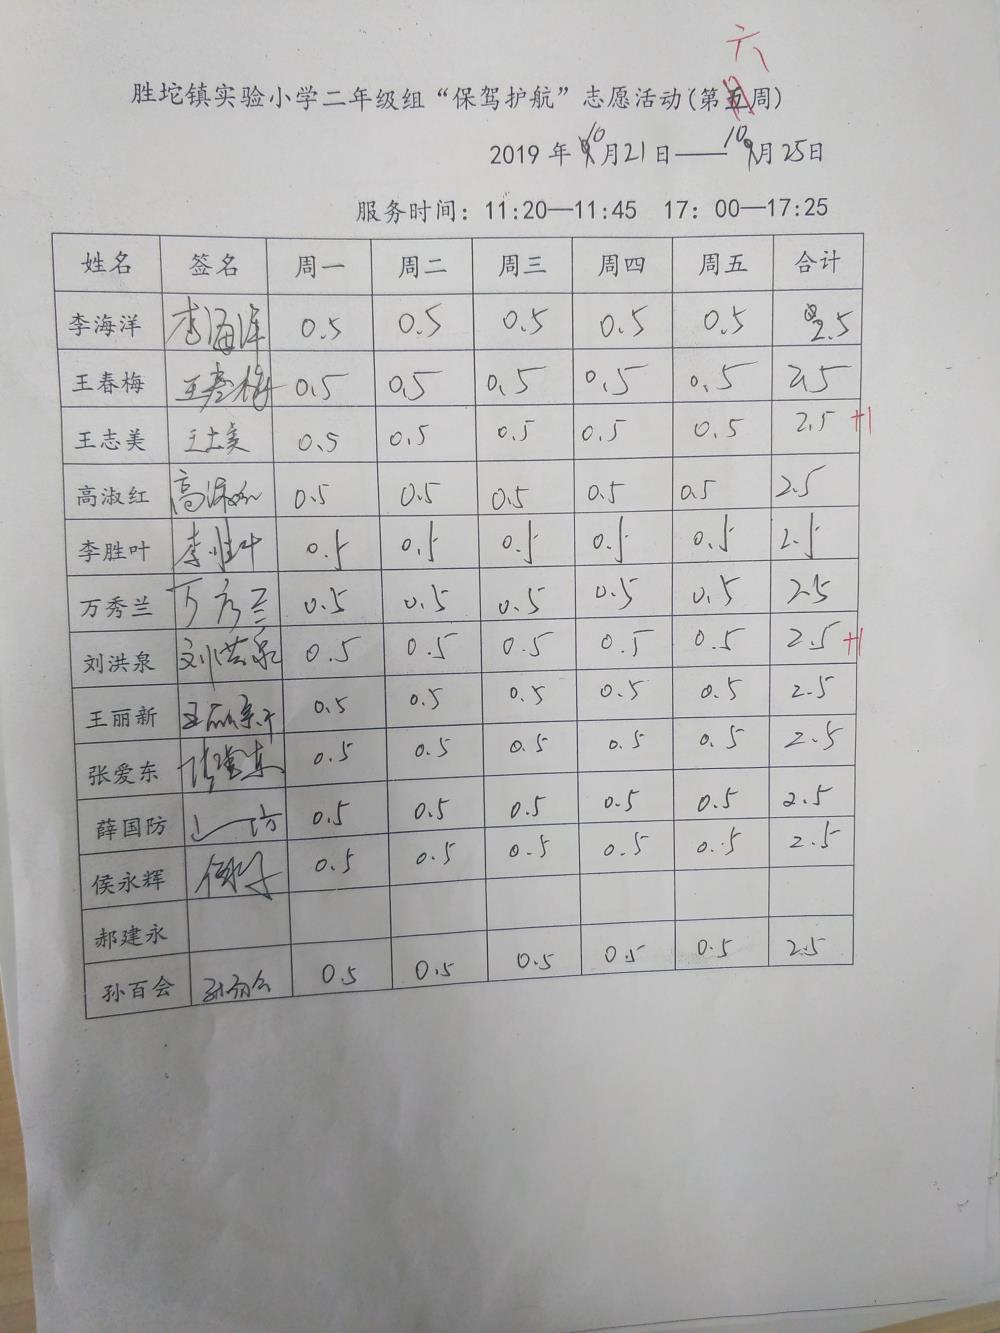 六
胜坨镇实验小学二年级组“保驾护航”志愿活动(第五周)
2019 年 10月21日——10月25日
服务时间: 11:20—11:45 17: 00—17:25
姓名 签名 周一 周二 周三 周四 周五 合计
李海洋 李海洋 0.5 0.5 0.5 0.5 0.5 2.5
王春梅 王春梅 0.5 0.5 0.5 0.5 0.5 2.5
王志美 王志美 0.5 0.5 0.5 0.5 0.5 2.5 +1
高淑红 高淑红 0.5 0.5 0.5 0.5 0.5 2.5
李胜叶 李胜叶 0.5 0.5 0.5 0.5 0.5 2.5
万秀兰 万秀兰 0.5 0.5 0.5 0.5 0.5 2.5
刘洪泉 刘洪泉 0.5 0.5 0.5 0.5 0.5 2.5 +1
王丽新 王丽新 0.5 0.5 0.5 0.5 0.5 2.5
张爱东 张爱东 0.5 0.5 0.5 0.5 0.5 2.5
薛国防 0.5 0.5 0.5 0.5 0.5 2.5
侯永辉 0.5 0.5 0.5 0.5 0.5 2.5
郝建永
孙百会 孙百会 0.5 0.5 0.5 0.5 0.5 2.5